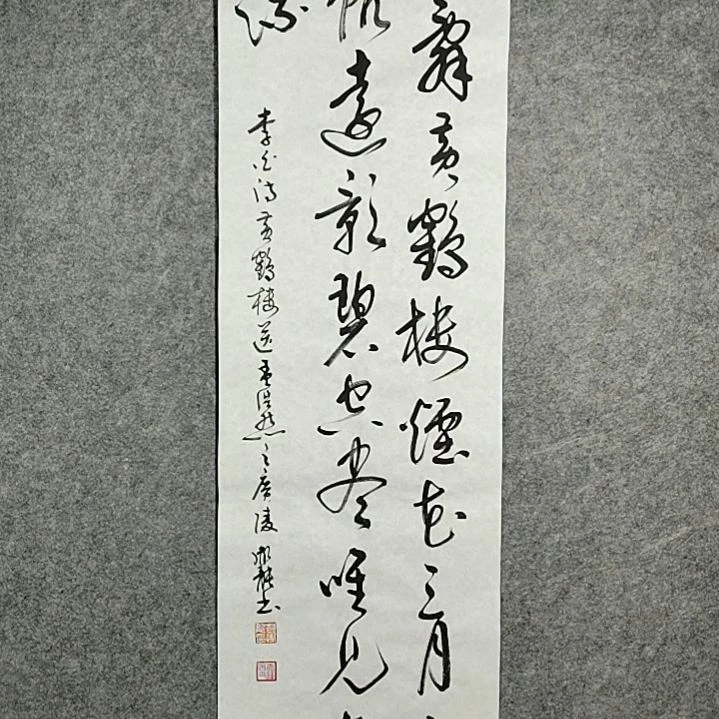 辭黃鶴樓煙花三月
帆遠影碧空盡唯見
流
李白詩黃鶴樓送孟浩然之廣陵 書